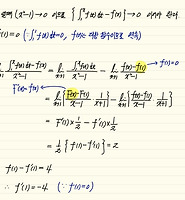 (x²-1)→0 이므로 {∫₁ˣf(t)dt-f(x)}→0 이어야 한다
f(1)=0 (∵∫₁¹f(t)dt=0, f(x)는
lim x→1 ∫₁ˣf(t)dt-f(x) / x²-1 = lim x→1 ∫₁ˣf(t)dt / x²-1 - lim x→1 f(x)-f(1) / x²-1 → f(1)=0
F(x)-F(1)
= lim x→1 {F(x)-F(1) / x-1 · 1 / x+1} - lim x→1 {f(x)-f(1) / x-1 · 1 / x+1}
= F'(1)×1/2 - f'(1)×1/2
= 1/2{f(1)-f'(1)}=2
f(1)-f'(1)=4
∴ f'(1)=-4 (∵ f(1)=0)